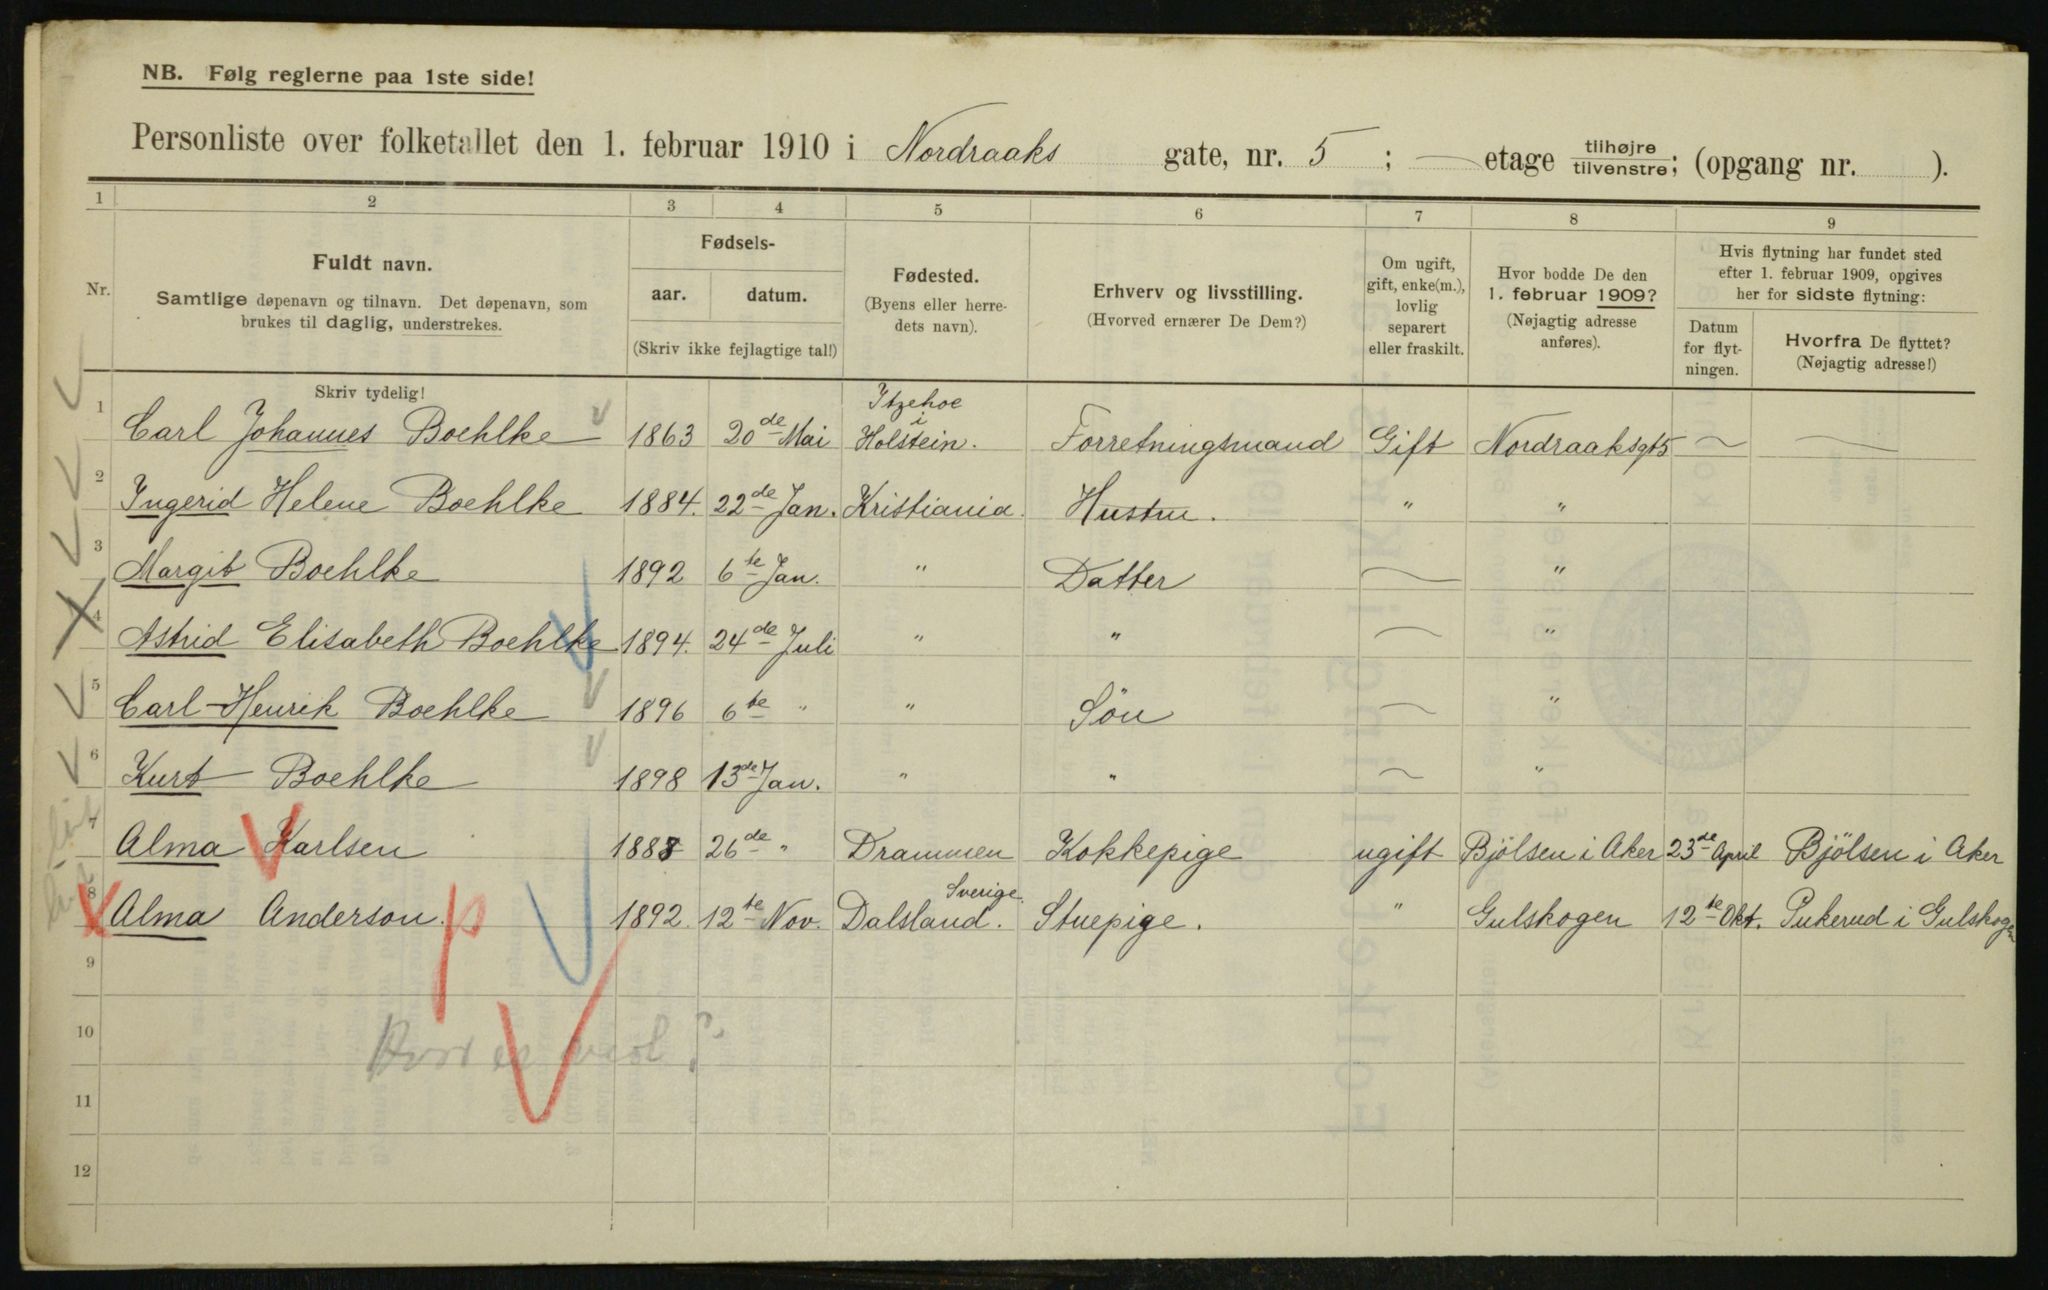 NB. Følg reglerne paa 1ste side!
Personliste over folketallet den 1. februar 1910 i Nordraaks gate, nr. 5 ; — etage tilhøjre tilvenstre; (opgang nr. ).
1 2 3 4 5 6 7 8 9
Nr.
Fuldt navn.
Samtlige døpenavn og tilnavn. Det døpenavn, som
brukes til daglig, understrekes.
Skriv tydelig!
Fødsels-
aar. datum.
(Skriv ikke fejlagtige tal!)
Fødested.
(Byens eller herre-
dets navn).
Erhverv og livsstilling.
(Hvorved ernærer De Dem?)
Om ugift,
gift, enke(m.),
lovlig
separert
eller fraskilt.
Hvor bodde De den
1. februar 1909?
(Nøjagtig adresse
anføres).
Hvis flytning har fundet sted
efter 1. februar 1909, opgives
her for sidste flytning:
Datum
for flyt-
ningen.
Hvorfra De flyttet?
(Nøjagtig adresse!)
1 Carl Johannes Boehlke 1863 20de Mai Itzehoe i Holstein. Forretningsmand Gift Nordraaksgt 5 — —
2 Ingerid Helene Boehlke 1884. 22de Jan. Kristiania. Hustru. " "
3 Margit Boehlke 1892 6te Jan. " Datter — "
4 Astrid Elisabeth Boehlke 1894. 24de Juli " " — "
5 Carl-Henrik Boehlke 1896 6te " " Sön — "
6 Kurt Boehlke 1898 13de Jan. " " — "
7 Alma Karlsen 1888 26de " Drammen Kokkepige ugift Bjölsen i Aker 23de April Bjölsen i Aker
8 Alma Anderson. 1892. 12te Nov. Dalsland. Sverige. Stuepige. " Gulskogen 12te Okt. Pukerud i Gulskogen
9
10
11
12